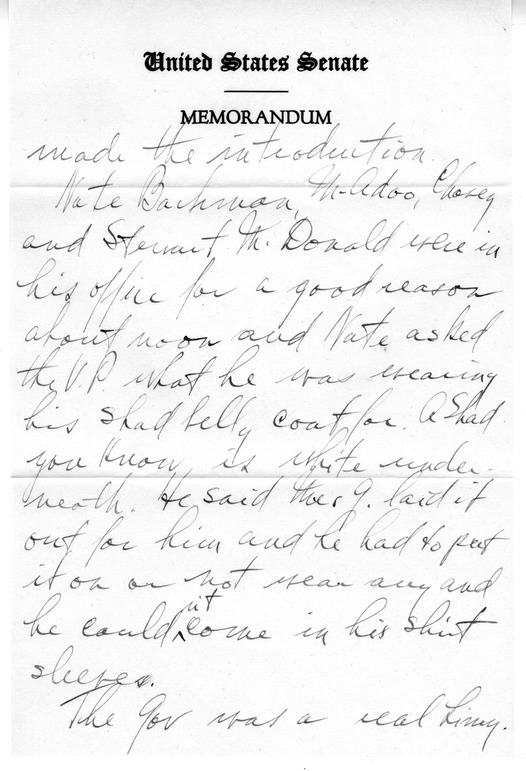 United States Senate
MEMORANDUM
made the introduction.
Nate Bachman, McAdoo, Chosey
and Stewart McDonald were in
his office for a good reason
about noon and Nate asked
the V.P. what he was wearing
his shad belly coat for. A shad
you know, is white under-
neath. He said Mrs G. laid it
out for him and he had to put
it on or not wear any and
he couldn't come in his shirt
sleeves.
The Gov was a real Limy.